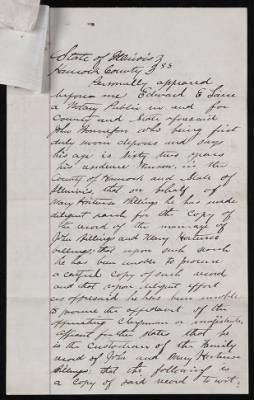 State of Illinois }
Hancock County } SS
Personally appeared
before me Edward E Lane
a Notary Public in and for
County and State aforesaid
John who being first
duly sworn deposes and says
his age is sixty two years
his residence in the
County of Hancock and State of
Illinois, that on behalf of
Mary Hortense Billings he has made
diligent search for the Copy of
the record of the marriage of
John Billings and Mary Hortense
Billings; that upon such search
he has been unable to procure
a certified copy of such record
and that upon diligent effort
as aforesaid he has been unable
to procure the affidavit of the
officiating Clergyman or magistrate
Affiant further states that he
is the custodian of the Family
record of John and Mary Hortense
Billings that the following is
a copy of said record to wit: